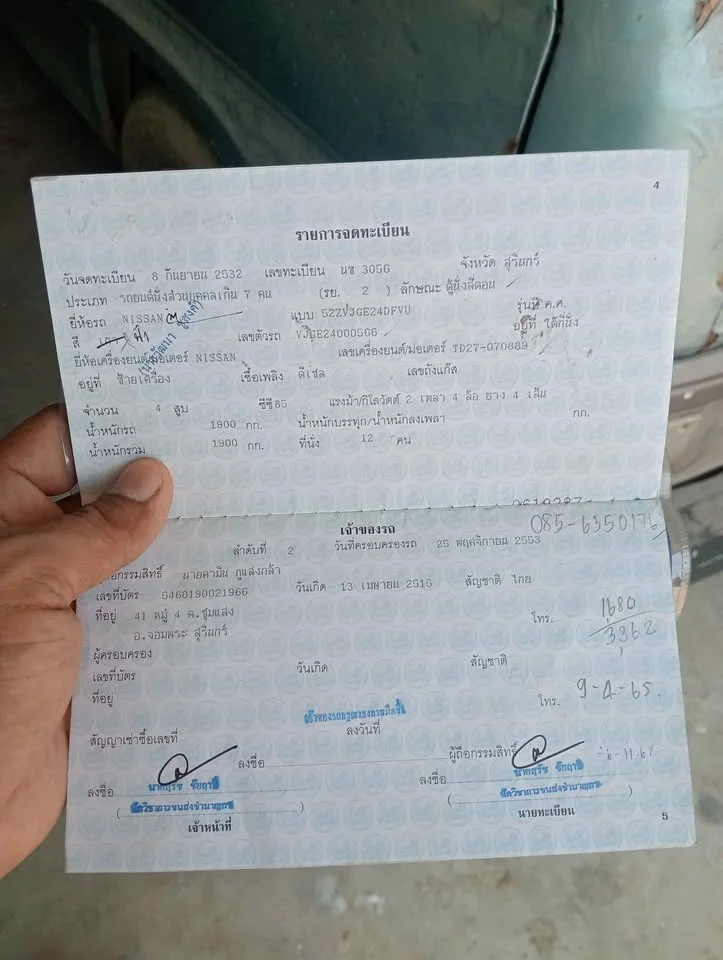 4
รายการจดทะเบียน
วันจดทะเบียน 8 กันยายน 2532 เลขทะเบียน นข 3056 จังหวัด สุรินทร์
ประเภท รถยนต์นั่งส่วนบุคคลเกิน 7 คน (รย. 2 ) ลักษณะ ตู้นั่งสี่ตอน
ยี่ห้อรถ NISSAN แบบ 52ZVJGE24DFVU รุ่นปี ค.ศ.
สี เทา ฟ้า เลขตัวรถ VJGE24000566 อยู่ที่ ใต้ที่นั่ง
ยี่ห้อเครื่องยนต์/มอเตอร์ NISSAN เลขเครื่องยนต์/มอเตอร์ TD27-070889
อยู่ที่ ซ้ายเครื่อง เชื้อเพลิง ดีเซล เลขถังแก๊ส
จำนวน 4 สูบ ซีซี 85 แรงม้า/กิโลวัตต์ 2 เพลา 4 ล้อ ยาง 4 เส้น
น้ำหนักรถ 1900 กก. น้ำหนักบรรทุก/น้ำหนักลงเพลา กก.
น้ำหนักรวม 1900 กก. ที่นั่ง 12 คน
เจ้าของรถ
085-6350176
ลำดับที่ 2 วันที่ครอบครองรถ 25 พฤศจิกายน 2553
นายคามิน ภูแสงกล้า
เลขที่บัตร 5460190021966 วันเกิด 13 เมษายน 2515 สัญชาติ ไทย
ที่อยู่ 41 หมู่ 4 ต.ชุมแสง โทร. 1680
อ.จอมพระ สุรินทร์ 3362
ผู้ครอบครอง
เลขที่บัตร วันเกิด สัญชาติ
ที่อยู่ โทร. 9-4-65.
สัญญาเช่าซื้อเลขที่ ลงวันที่
ผู้ถือกรรมสิทธิ์ 6-11-62
ลงชื่อ ลงชื่อ ลงชื่อ
นักวิชาการขนส่งชำนาญการ นักวิชาการขนส่งชำนาญการ
เจ้าหน้าที่ นายทะเบียน
5